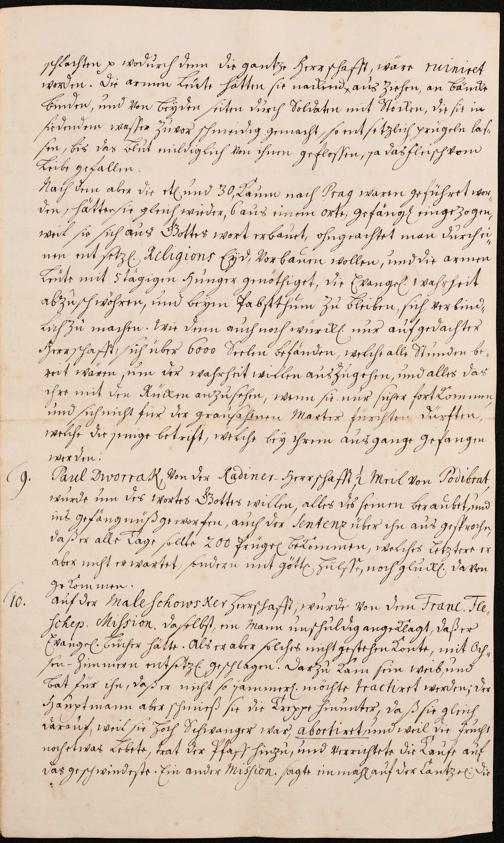 schlachten p wodurch denn die gantze Herrschafft, wäre ruiniret
worden. Die armen Leute hätten sie nackend ausziehen, an Bäncke
binden, und von beyden seiten durch Soldaten mit Stöcken, die sie in
siedenden wasser zuvor schmeidig gemacht, so entsetzlich prügeln las-
sen, bis das blut mildiglich von ihnen geflossen, ja das fleisch vom
Leibe gefallen.
Nach dem aber die etl und 30, kaum nach Prag waren geführet wor-
den, hätten sie gleich wieder, 6 aus einem orte, gefängl eingezogen,
weil sie sich aus Gottes wort erbauet, ohngeachtet man durch ei-
nen entsetzl Religions Eyd, vorbauen wollen, und die armen
Leute mit 5 tägigen Hunger genöthiget, die Evangel wahrheit
abzuschwöhren, und beym Pabstthum zu bleiben, sich verbind-
lich zu machen. Wie denn auch noch würckl nur auf gedachter
Herrschafft, sich über 6000 Seelen befänden, welche alle Stunden be-
reit wären, um der wahrheit willen auszugehen, und alles das
ihre mit den Rücken anzusehen, wenn sie nur sicher fortkommen
und sich nicht für der grausahmen Marter fürchten dürfften,
welche die jenige betrift, welche bey ihrem ausgange gefangen
werden.
9. Paul Dworrak, von der Kadiner-Herrschafft ½ Meil von Podibrat
wurde um des wortes Gottes willen, alles des seinen beraubet, und
ins gefängnüß geworfen, auch der Sentenz über ihn ausgesprochen,
daß er alle Tage solte 200 Prügel bekommen, welches letztere er
aber nicht erwartet, sondern mit göttl Hülffe, noch glückl davon
gekommen.
10. Auf der Maleschowsker Herrschafft, wurde von dem Franc. Fle,
schep. Mission. daselbst, ein Mann unschuldig angeklagt, daß er
Evangel bücher hätte. Als er aber solches nicht gestehen konte, mit Och-
sen-Zimmern entsetzl geschlagen. Darzu kam sein weib, und
bat für ihn, daß er nicht so jammerl. möchte tractiret werden; der
Hauptmann aber schmieß sie die Treppe hinunter, daß sie gleich
darauf, weil sie hoch Schwanger war, abortiret, und weil die frucht
noch etwas lebete, trat der Pfaff hinzu, und verrichtete die Taufe auf
das geschwindeste. Ein ander Mission. sagte einmahl auf der Cantzel: die